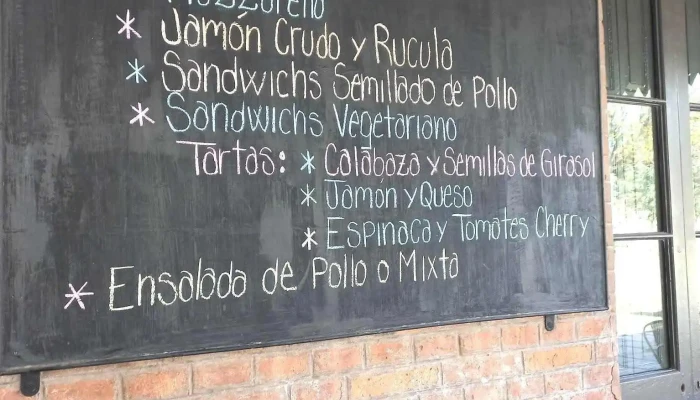 * Jamón Crudo y Rucula
* Sandwichs Semillado de Pollo
* Sandwichs Vegetariano
Tartas: * Calabaza y Semillas de Girasol
* Jamon y Queso
* Espinaca y Tomates Cherry
* Ensalada de Pollo o Mixta